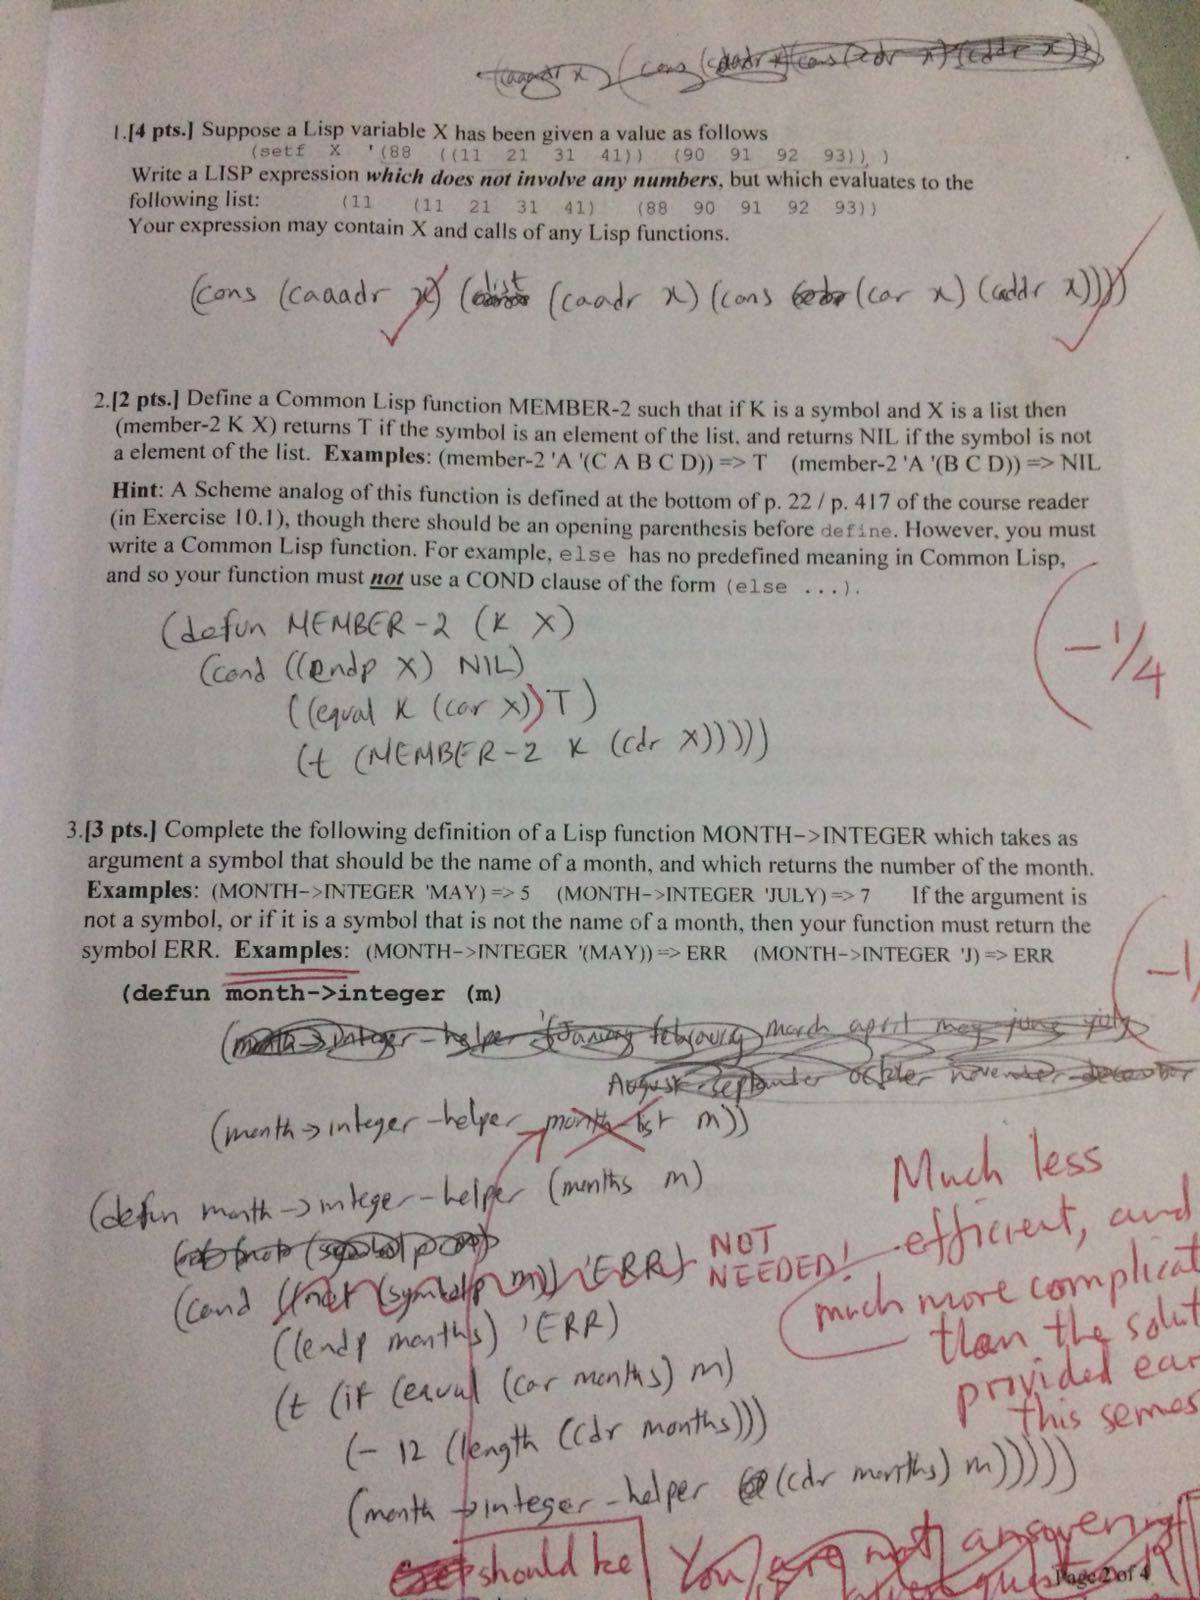 (caaadr x) (cons (caadr x) (cons (cdr x) (cddr x)))
1.[4 pts.] Suppose a Lisp variable X has been given a value as follows
(setf X '(88 ((11 21 31 41)) (90 91 92 93)) )
Write a LISP expression which does not involve any numbers, but which evaluates to the
following list: (11 (11 21 31 41) (88 90 91 92 93))
Your expression may contain X and calls of any Lisp functions.
(cons (caaadr x) (list (caadr x) (cons (car x) (caddr x))))
2.[2 pts.] Define a Common Lisp function MEMBER-2 such that if K is a symbol and X is a list then
(member-2 K X) returns T if the symbol is an element of the list, and returns NIL if the symbol is not
a element of the list. Examples: (member-2 'A '(C A B C D)) => T (member-2 'A '(B C D)) => NIL
Hint: A Scheme analog of this function is defined at the bottom of p. 22 / p. 417 of the course reader
(in Exercise 10.1), though there should be an opening parenthesis before define. However, you must
write a Common Lisp function. For example, else has no predefined meaning in Common Lisp,
and so your function must not use a COND clause of the form (else ...).
(defun MEMBER-2 (K X)
(cond ((endp X) NIL)
-1/4
((equal K (car X)) T)
(t (MEMBER-2 K (cdr X)))))
3.[3 pts.] Complete the following definition of a Lisp function MONTH->INTEGER which takes as
argument a symbol that should be the name of a month, and which returns the number of the month.
Examples: (MONTH->INTEGER 'MAY) => 5 (MONTH->INTEGER 'JULY) => 7 If the argument is
not a symbol, or if it is a symbol that is not the name of a month, then your function must return the
symbol ERR. Examples: (MONTH->INTEGER '(MAY)) => ERR (MONTH->INTEGER 'J) => ERR
-1
(defun month->integer (m)
(month->integer-helper '(January february march april may june july
August september october november december
(month->integer-helper month-list m))
Much less
(defun month->integer-helper (months m)
efficient, and
NOT
(cond ((not (symbolp m)) 'ERR)
NEEDED!
much more complicat
((endp months) 'ERR)
than the solut
(t (if (equal (car months) m)
provided ear
this semes
(- 12 (length (cdr months)))
(month->integer-helper (cdr months) m)))))
should be You are not answering
Page 2 of 4